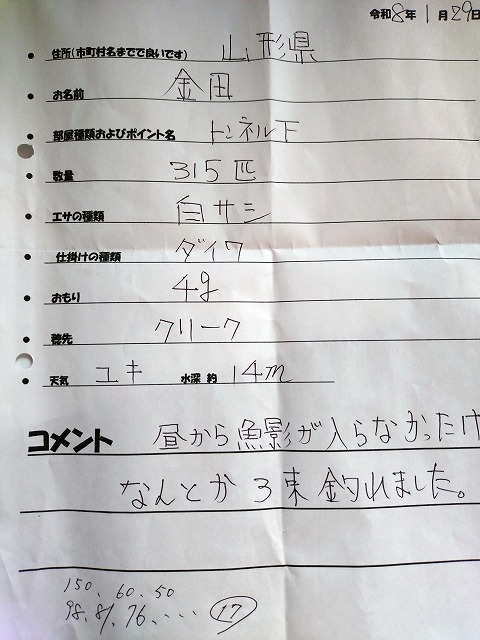 令和8年1月29日
・住所(市町村名までで良いです) 山形県
・お名前 金田
・部屋種類およびポイント名 トンネル下
・数量 315匹
・エサの種類 白サシ
・仕掛けの種類 ダイワ
・おもり 4g
・穂先 クリーク
・天気 ユキ 水深 約 14m
コメント 昼から魚影が入らなかったけ
なんとか3束釣れました。
150、60、50
98、81、76、・・・ 17